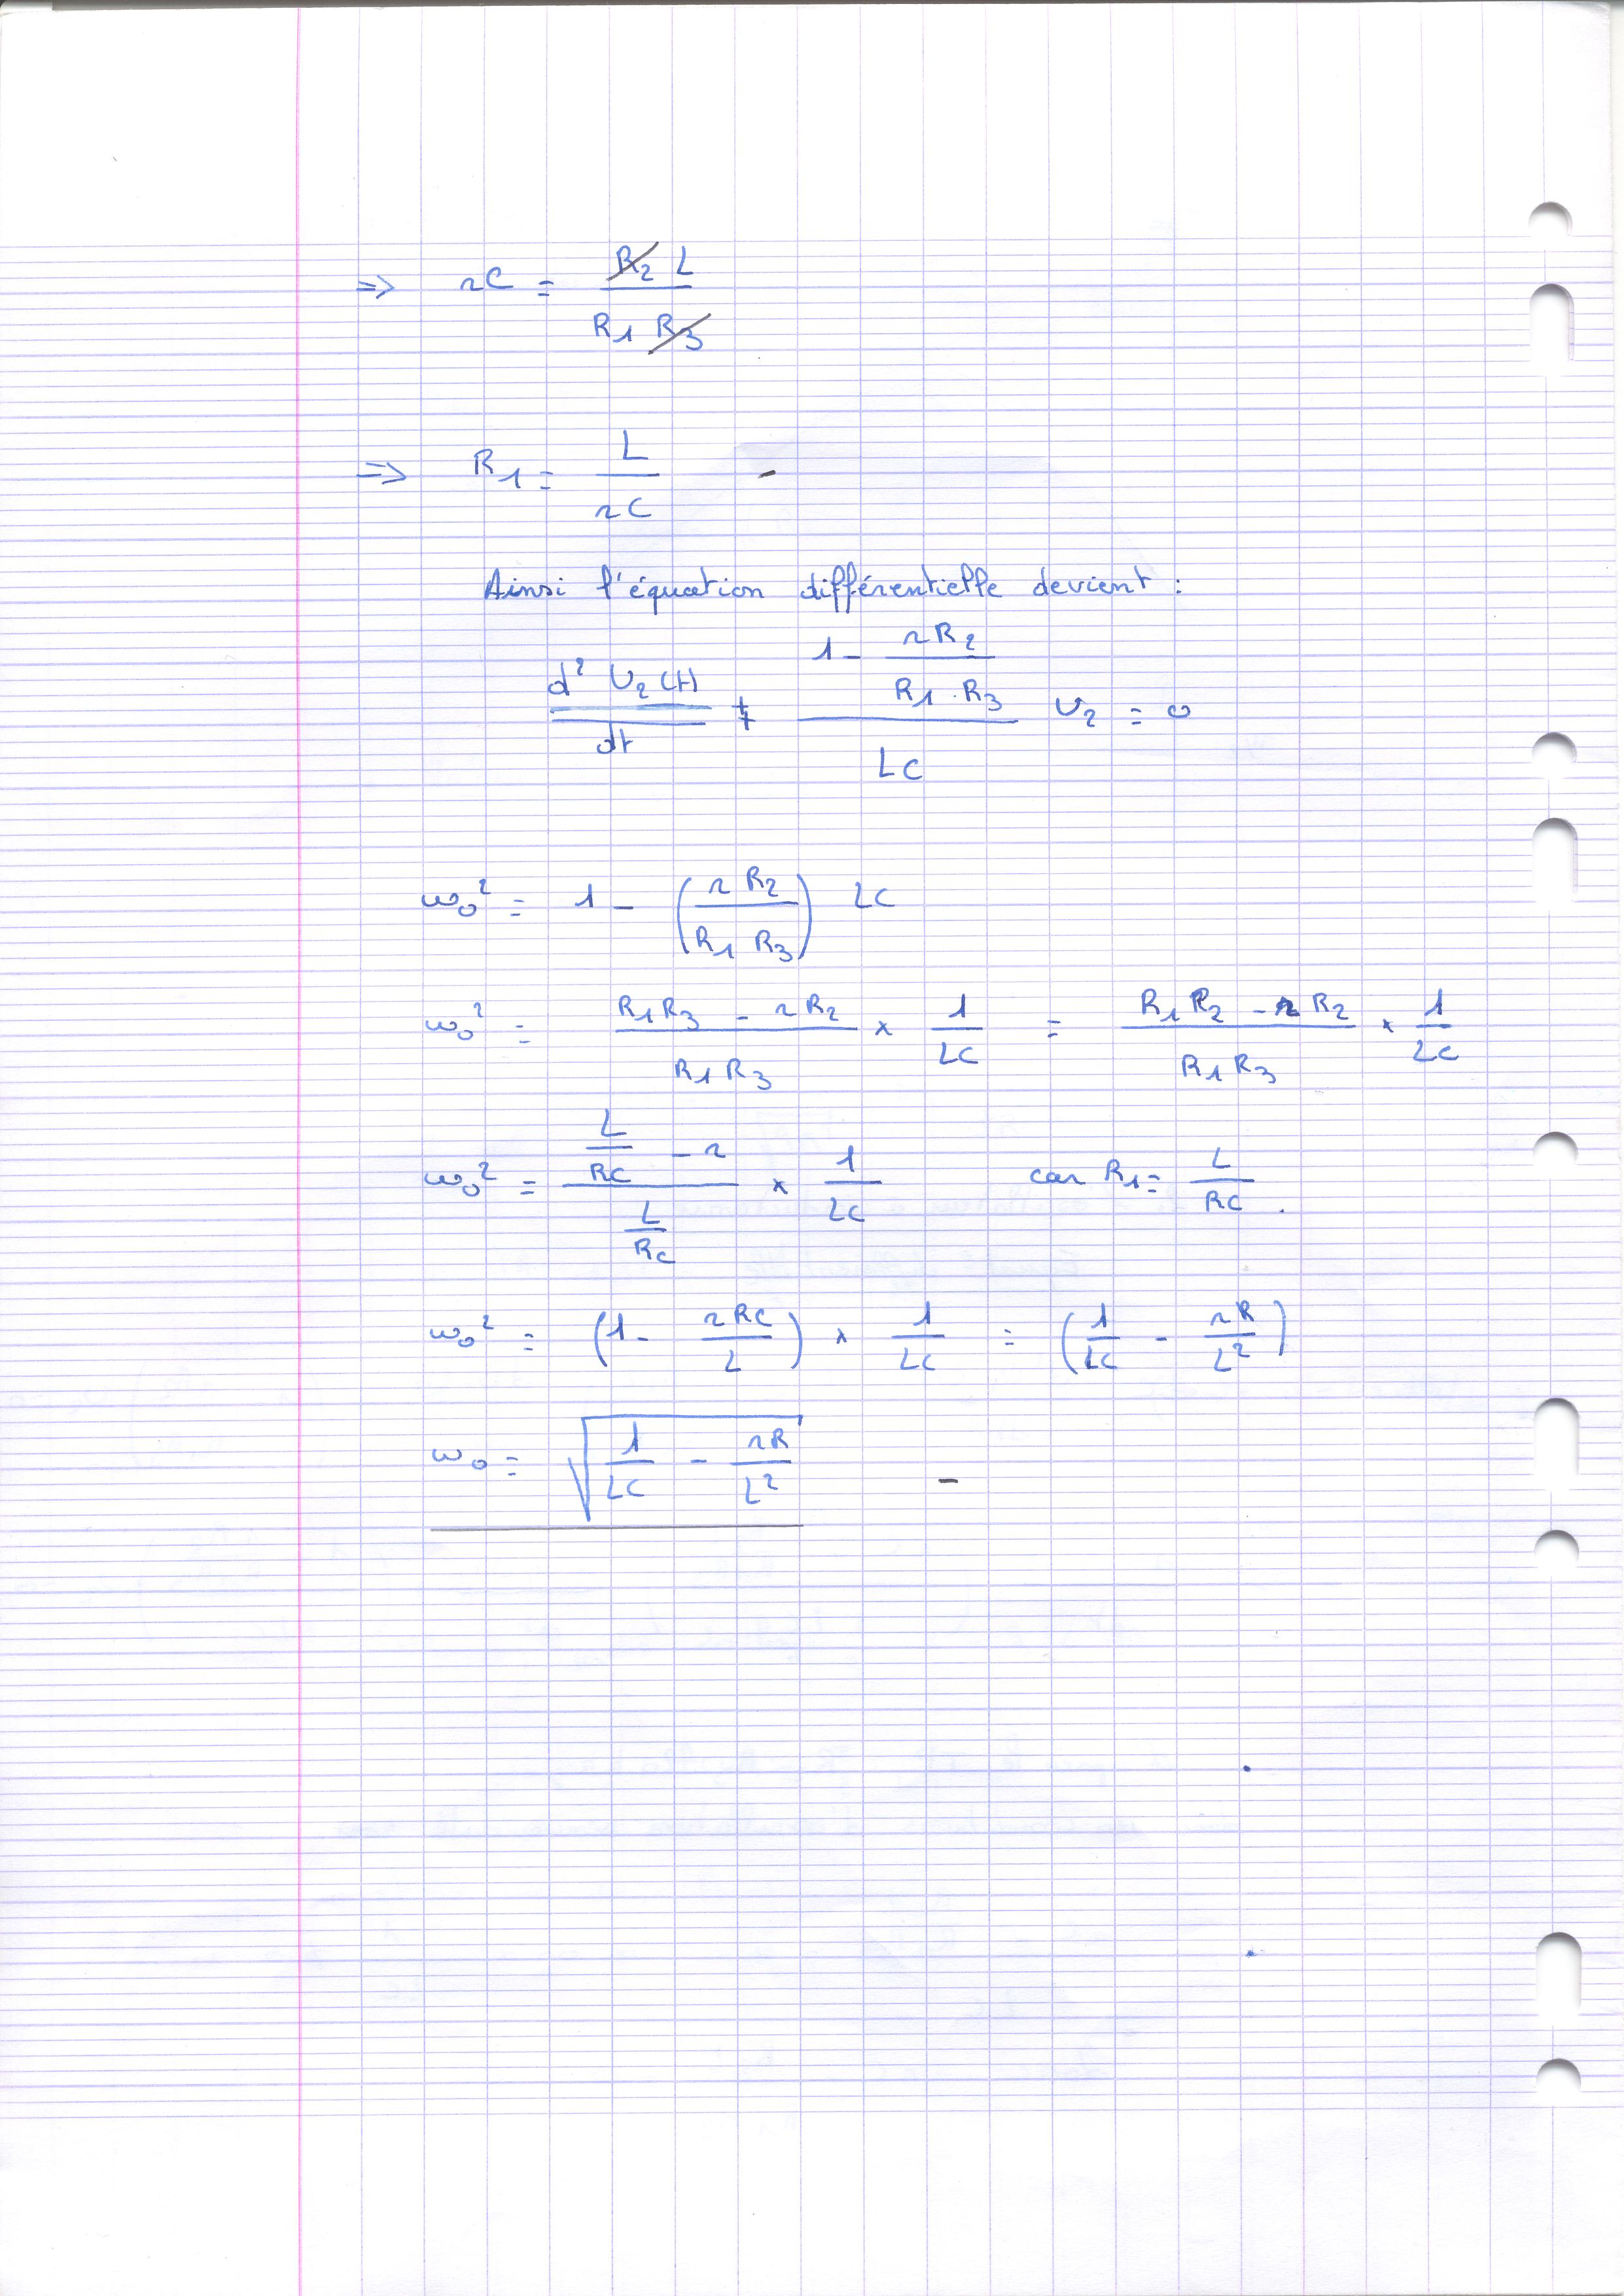 ⇒ rC = R2 L / R1 R3
⇒ R1 = L / rC -
Ainsi l'équation différentielle devient :
d² U2(t) / dt + (1 - rR2 / R1 . R3) / LC U2 = 0
ω0² = 1 - (r R2 / R1 R3) LC
ω0² = (R1R3 - rR2) / R1R3 × 1/LC = (R1R2 - rR2) / R1R3 × 1/LC
ω0² = (L/RC - r) / (L/RC) × 1/LC car R1 = L/RC .
ω0² = (1 - rRC/L) × 1/LC = (1/LC - rR/L²)
ω0 = √(1/LC - rR/L²) -